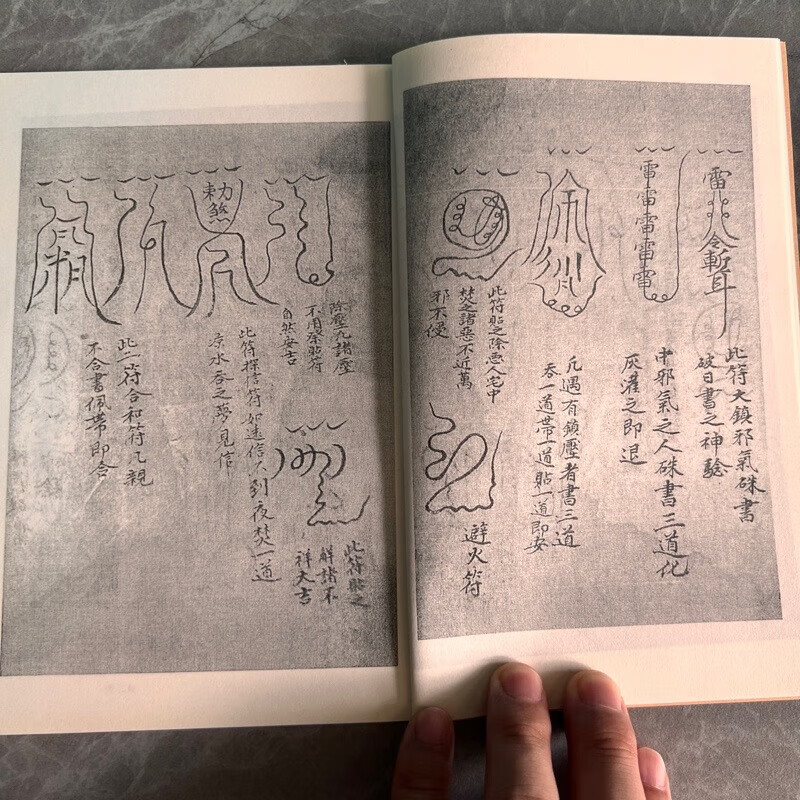 雷
令
斬耳
此符大鎮邪氣硃書
破日書之神驗
雷雷雷雷雷
中邪氣之人硃書三道化
灰灌之即退
凡遇有鎮壓者書三道
吞一道帶一道貼一道即安
此符貼之除惡人宅中
焚之諸惡不近萬
邪不侵
避火符
除壓凡諸壓
不用祭貼符
自然安吉
此符貼之
解諸不
祥大吉
敕煞
此符探信符如遠信不到夜焚一道
涼水吞之夢見信
此二符合和符凡親
不合書佩帶即合